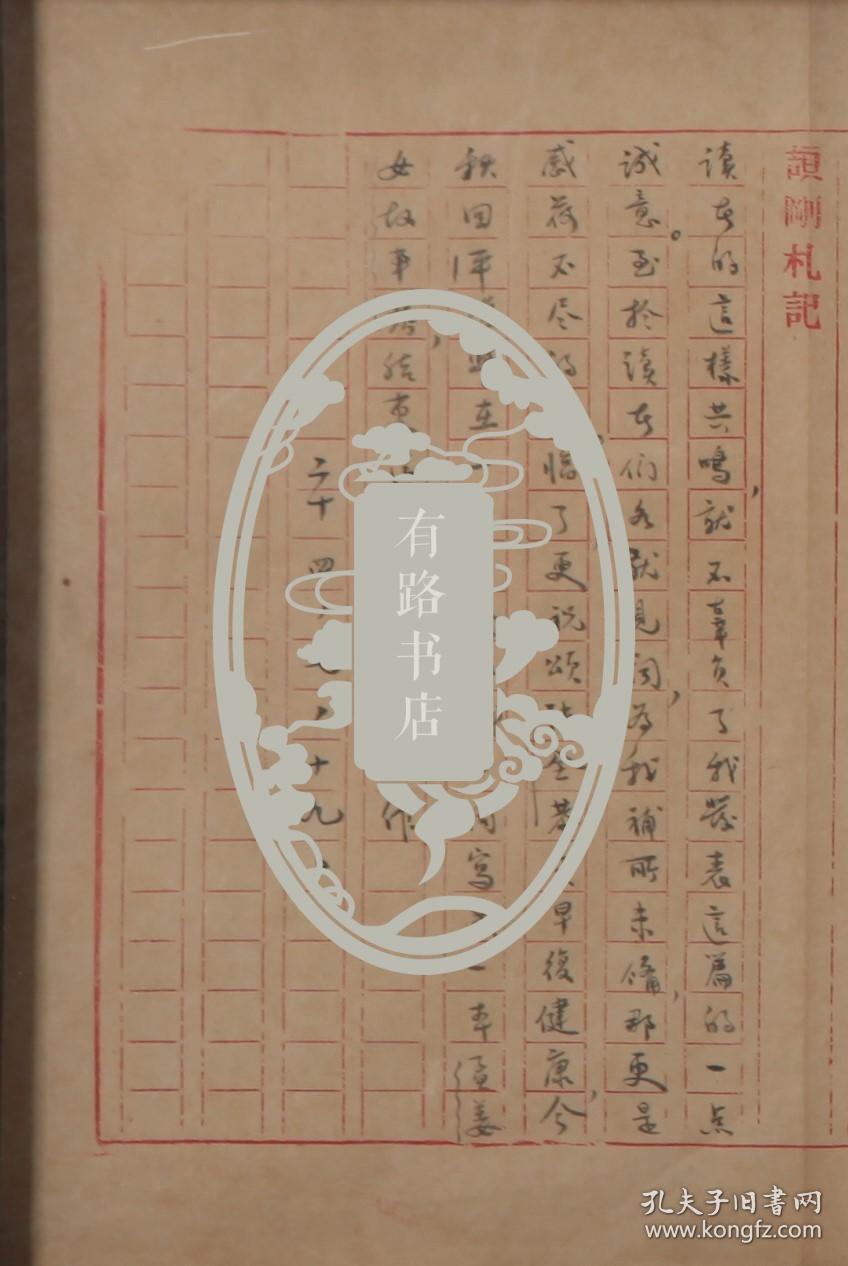 頡剛札記
读者的這樣共鳴，就不辜负了我發表這篇的一点
诚意。至於读者们各就見闻，为我補所未備，那更是
感荷不尽的 临了，更祝颂 早復健康，今
秋回 在 寫 一本孟姜
女故事 结束 作
二十四 七 十九
有路书店
孔夫子旧书网
www.kongfz.com